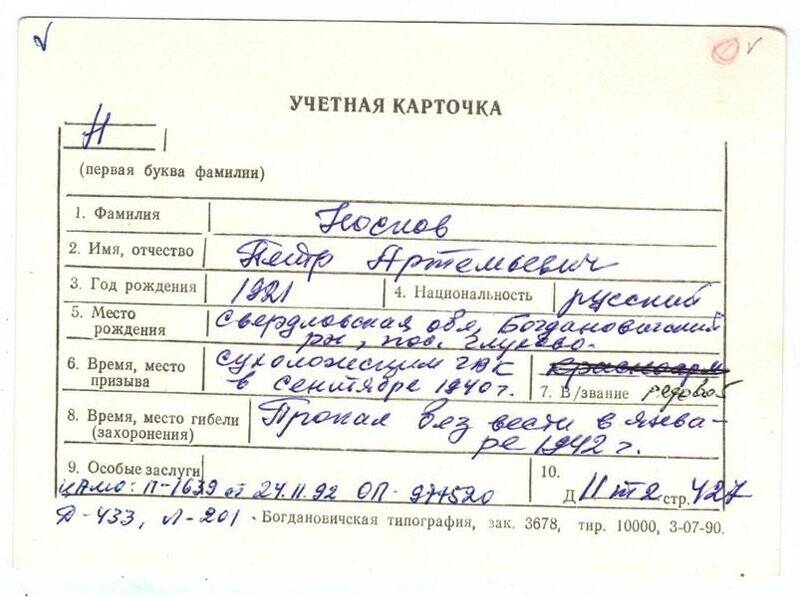 УЧЕТНАЯ КАРТОЧКА
Н
(первая буква фамилии)
1. Фамилия Носков
2. Имя, отчество Петр Артемьевич
3. Год рождения 1921 4. Национальность русский
5. Место рождения Свердловская обл, Богдановичский
рн, пос. Глухово.
6. Время, место призыва Сухоложским ГВК
в сентябре 1940 г.
красноарм
7. В/звание рядовой
8. Время, место гибели (захоронения) Пропал без вести в янва-
ре 1942 г.
9. Особые заслуги
10.
Д II т 2 стр. 427
ЦАМО: П-1639 от 24.11.92 ОП-977520
Д-433, Л-201
Богдановичская типография, зак. 3678, тир. 10000, 3-07-90.